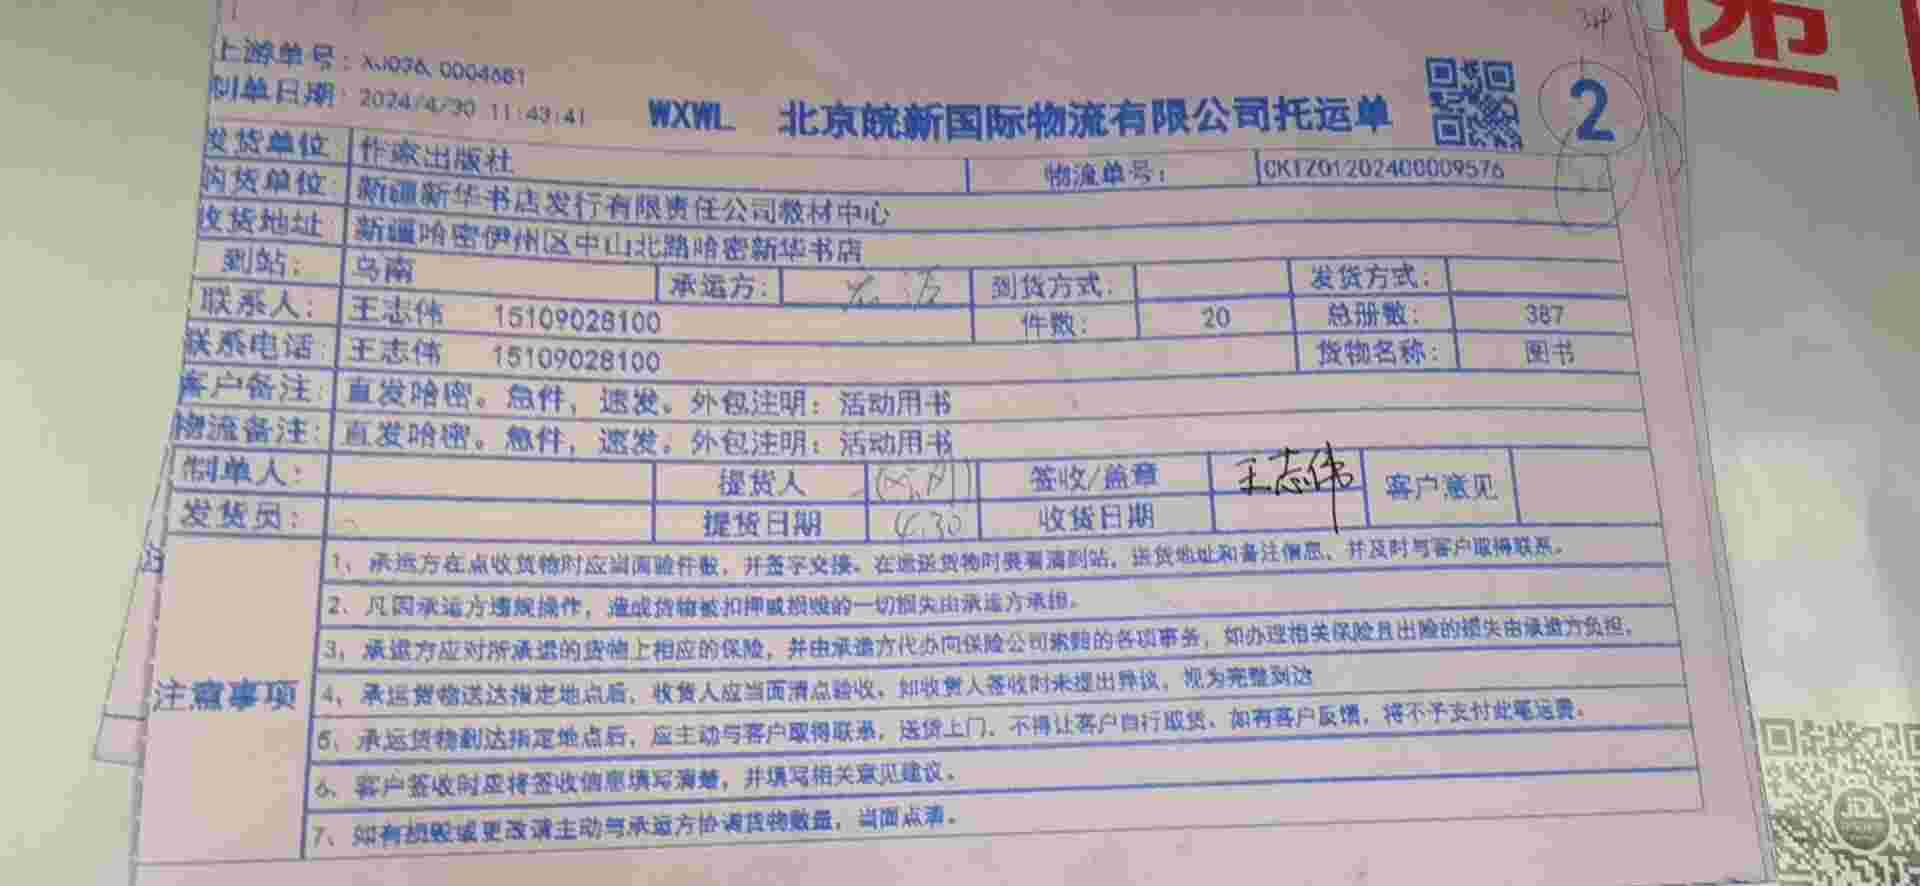 上游单号：XJ036, 0004681
制单日期：2024/4/30 11:43:41
WXWL 北京皖新国际物流有限公司托运单
2
发货单位 作家出版社 物流单号： CKTZ01202400009576
购货单位： 新疆新华书店发行有限责任公司教材中心
收货地址 新疆哈密伊州区中山北路哈密新华书店
到站： 乌南 承运方： 到货方式： 发货方式：
联系人： 王志伟 15109028100 件数： 20 总册数： 387
联系电话： 王志伟 15109028100 货物名称： 图书
客户备注： 直发哈密。急件，速发。外包注明：活动用书
物流备注： 直发哈密。急件，速发。外包注明：活动用书
制单人： 提货人 签收/盖章 王志伟 客户意见
发货员： 提货日期 4.30 收货日期
注意事项
1、承运方在点收货物时应当面验件数，并签字交接。在运送货物时要看清到站，送货地址和备注信息，并及时与客户取得联系。
2、凡因承运方违规操作，造成货物被扣押或损毁的一切损失由承运方承担。
3、承运方应对所承运的货物上相应的保险，并由承运方代办向保险公司索赔的各项事务，如办理相关保险且出险的损失由承运方负担。
4、承运货物送达指定地点后，收货人应当面清点验收。如收货人签收时未提出异议，视为完整到达
5、承运货物到达指定地点后，应主动与客户取得联系，送货上门，不得让客户自行取货。如有客户反馈，将不予支付此笔运费。
6、客户签收时应将签收信息填写清楚，并填写相关意见建议。
7、如有损毁或更改请主动与承运方协调货物数量，当面点清。